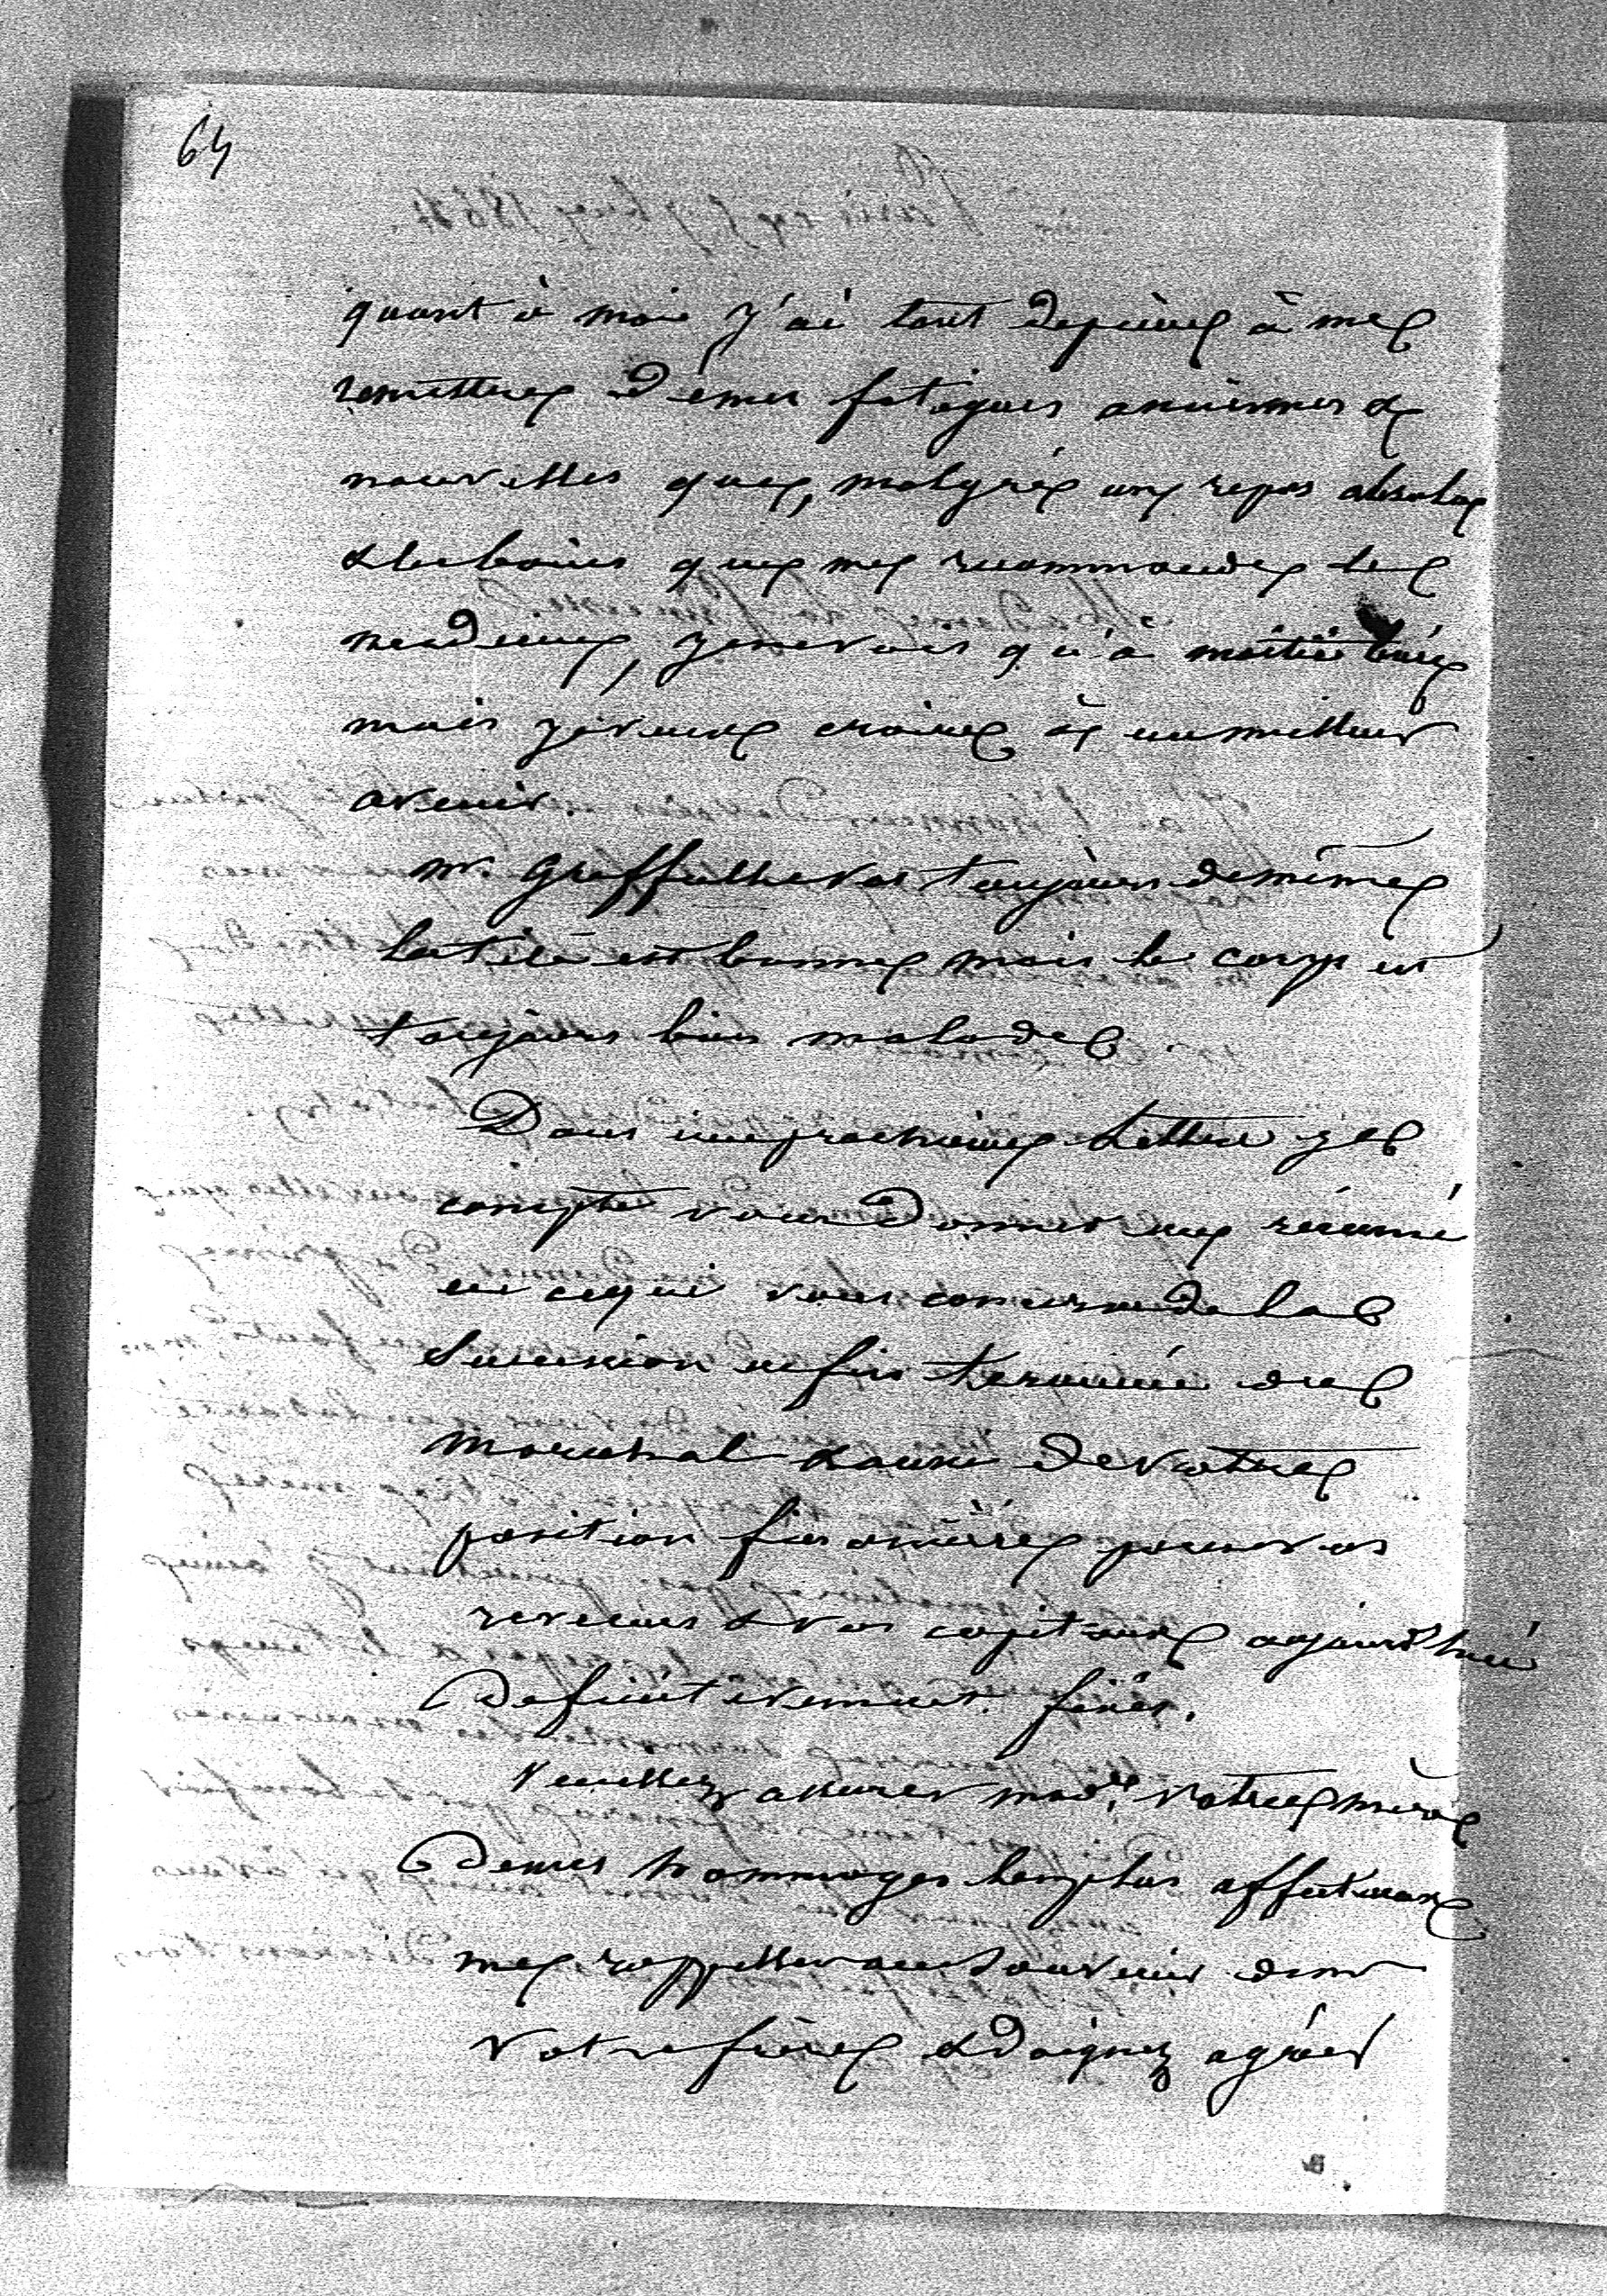 64
quant à moi j'ai tant de peine à me
remettre de mes fatigues anciennes &
nouvelles que, malgré un repos absolu
& les bains que me recommande le
medecin, je ne vais qu'à moitié bien
mais je veux croire à un meilleur
avenir.
Mr. Greffulhe va toujours de même
la tête est bonne mais le corps est
toujours bien malade.
Dans une prochaine Lettre je
compte vous donner un résumé
en ce qui vous concerne de la
Succession enfin terminée du
Marechal & aussi de votre
position financière pour vos
revenus & vos capitaux aujourd'hui
definitivement fixés.
Veuillez assurer Made. votre mère
de mes hommages les plus affectueux
me rappeller au Souvenir de Mr
votre frère & Daignez agréer